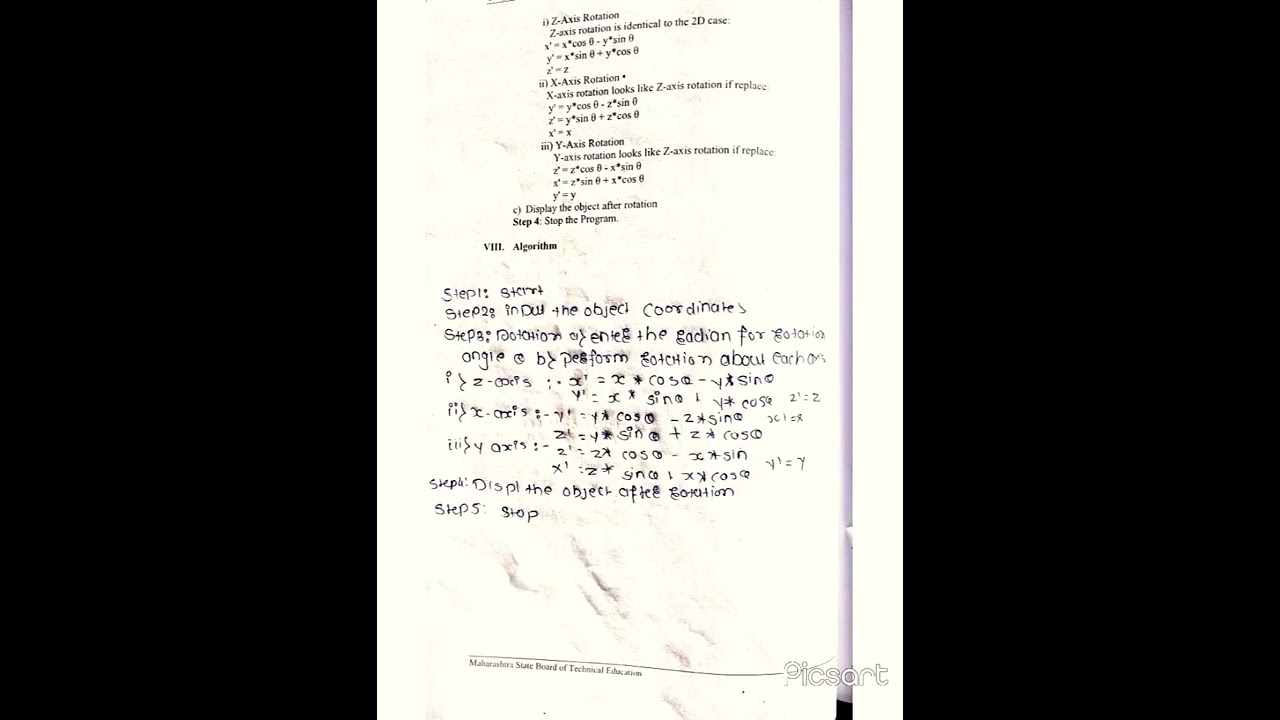 i) Z-Axis Rotation
Z-axis rotation is identical to the 2D case:
x' = x*cos θ - y*sin θ
y' = x*sin θ + y*cos θ
z' = z
ii) X-Axis Rotation
X-axis rotation looks like Z-axis rotation if replace:
y' = y*cos θ - z*sin θ
z' = y*sin θ + z*cos θ
x' = x
iii) Y-Axis Rotation
Y-axis rotation looks like Z-axis rotation if replace:
z' = z*cos θ - x*sin θ
x' = z*sin θ + x*cos θ
y' = y
c) Display the object after rotation
Step 4: Stop the Program.
VIII. Algorithm
Step1: Start
Step2: input the object Coordinates
Step3: Rotation a} enter the radian for rotation
angle θ b} perform rotation about each axis
i} z-axis :- x' = x * cosθ - y * sinθ
y' = x * sinθ + y * cosθ z' = z
ii} x-axis :- y' = y* cosθ - z * sinθ x' = x
z' = y* sinθ + z * cosθ
iii} y axis :- z' = z* cosθ - x * sin
x' = z* sinθ + x * cosθ y' = y
Step4: Displ the object after rotation
Step5: Stop
Maharashtra State Board of Technical Education
Picsart